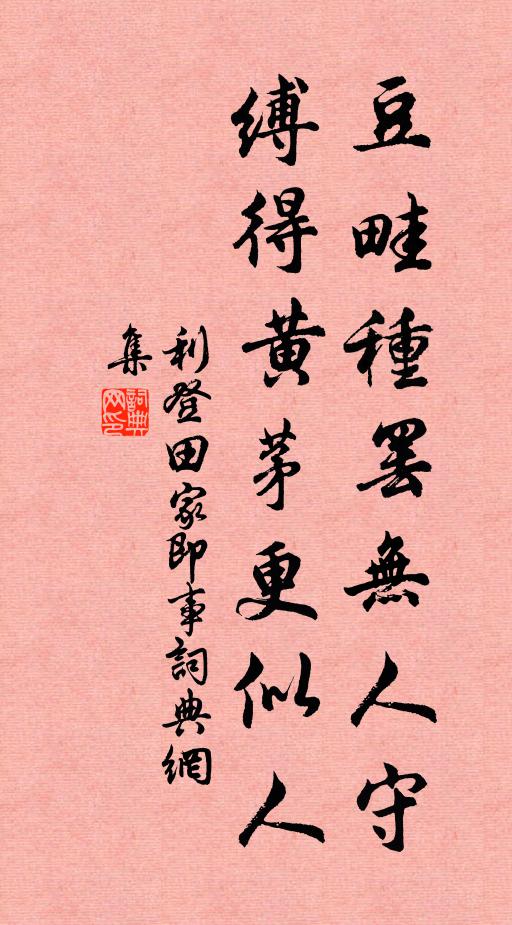 豆畦種罢無人守
縛得黄茅更似人
利登田家即事詞典網
集
詞典
网印